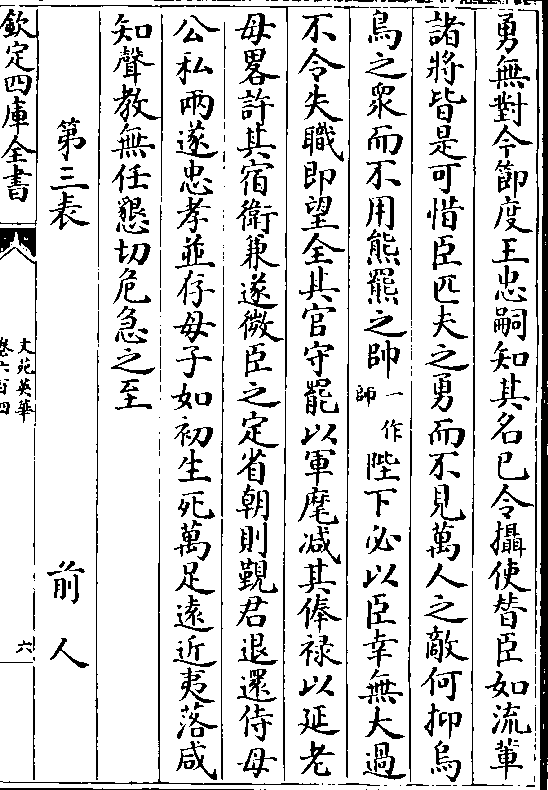 勇無對今節度王忠嗣知其名已令攝使替臣如流輩
諸將皆是可惜臣匹夫之勇而不見萬人之敵何抑烏
鳥之衆而不用熊羆之帥一作師陛下必以臣幸無大過
不令失職即望全其官守罷以軍麾减其俸禄以延老
母畧許其宿衛兼遂微臣之定省朝則覲君退還侍母
公私兩遂忠孝並存母子如初生死萬足遠近夷落咸
知聲教無任懇切危急之至
第三表 前人
欽定四庫全書
文苑英華
卷六百四
六